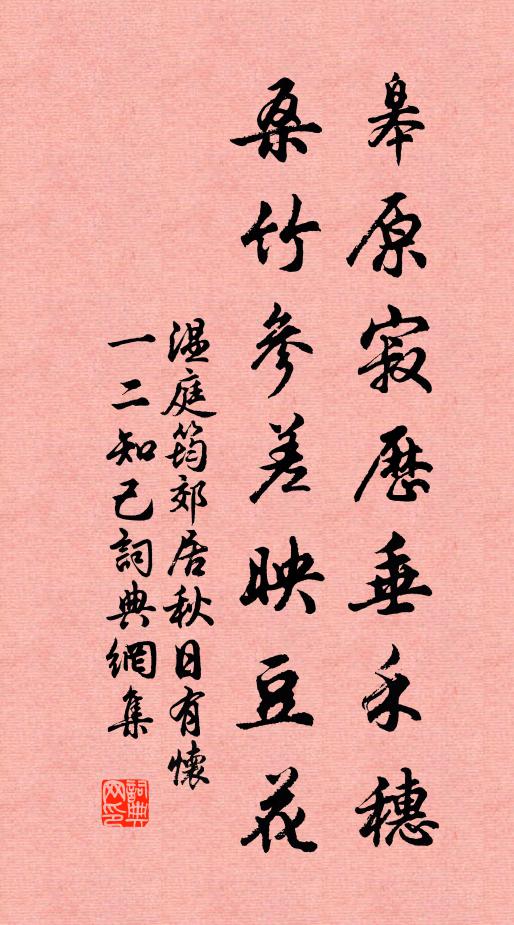 皋原寂歷垂禾穗
桑竹參差映豆花
溫庭筠郊居秋日有懷
一二知己詞典網集
詞典
网印